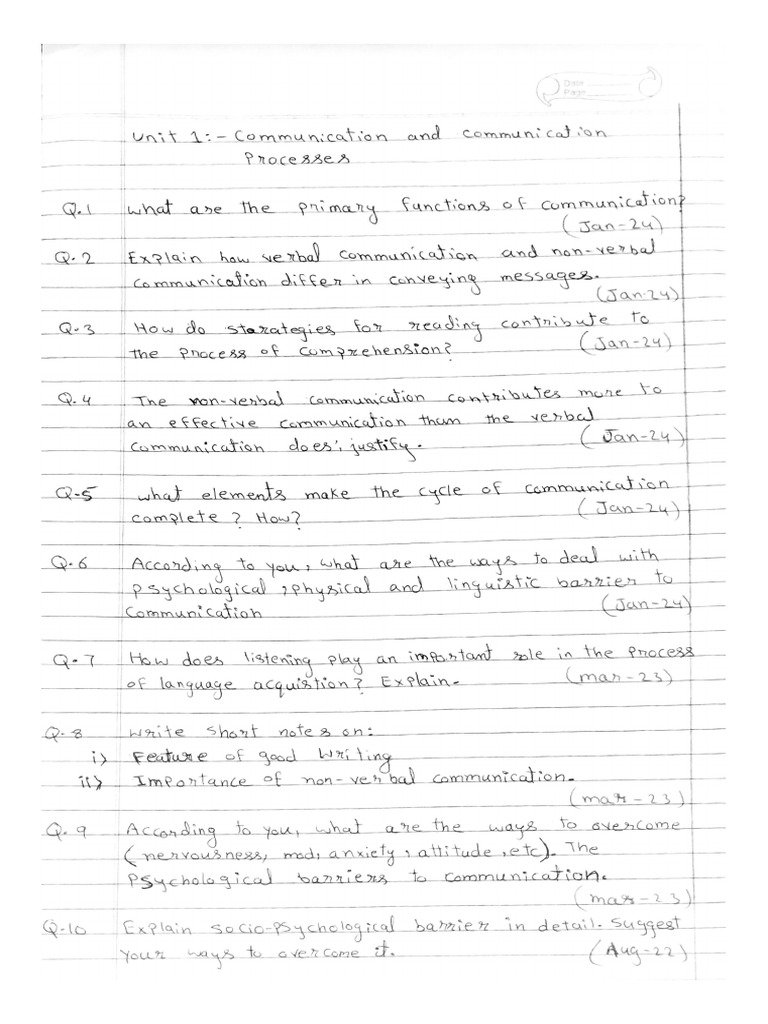 Date
Page
Unit 1:- Communication and communication
Processes
Q.1 What are the primary functions of communication?
(Jan-24)
Q.2 Explain how verbal communication and non-verbal
communication differ in conveying messages.
(Jan-24)
Q.3 How do starategies for reading contribute to
the process of comprehension? (Jan-24)
Q.4 The non-verbal communication contributes more to
an effective communication than the verbal
communication does', justify. (Jan-24)
Q-5 what elements make the cycle of communication
complete? How? (Jan-24)
Q.6 According to you, what are the ways to deal with
psychological, physical and linguistic barrier to
Communication (Jan-24)
Q-7 How does listening play an important role in the process
of language acquistion? Explain. (mar-23)
Q.8 Write short notes on:
i) Feature of good writing
ii) Importance of non-verbal communication.
(mar-23)
Q.9 According to you, what are the ways to overcome
(nervousness, mod, anxiety, attitude, etc). The
Psychological barriers to communication.
(mar-23)
Q-10 Explain socio-psychological barrier in detail. Suggest
your ways to overcome it. (Aug-22)